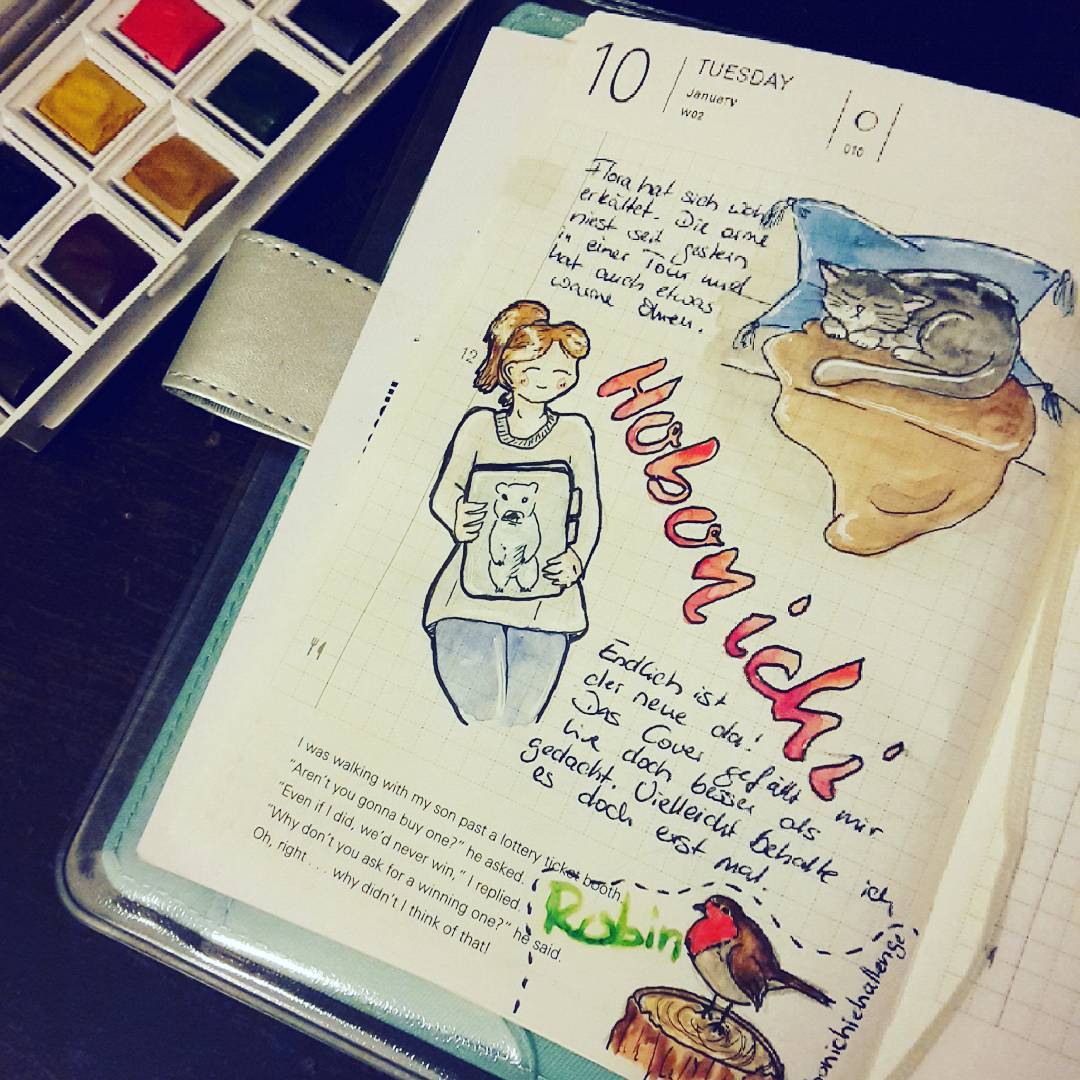 10
TUESDAY
January
W02
010
Flora hat sich wohl
erkältet. Die arme
niest seit gestern
in einer Tour und
hat auch etwas
warme Ohren.
12
Hobonichi
Endlich ist
der neue da!
Das Cover gefällt mir
live doch besser als
gedacht. Vielleicht behalte ich
es doch erst mal.
I was walking with my son past a lottery ticket booth.
"Aren't you gonna buy one?" he asked.
"Even if I did, we'd never win," I replied.
"Why don't you ask for a winning one?" he said.
Oh, right . . . why didn't I think of that!
Robin